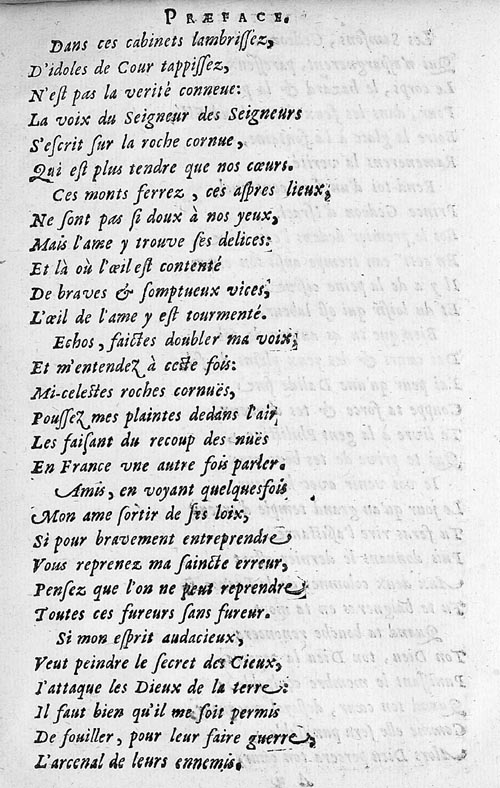 PRÆFACE.
Dans ces cabinets lambrissez,
D'idoles de Cour tappissez,
N'est pas la verité conneue:
La voix du Seigneur des Seigneurs
S'escrit sur la roche cornue,
Qui est plus tendre que nos cœurs.
Ces monts ferrez, ces aspres lieux,
Ne sont pas si doux à nos yeux,
Mais l'ame y trouve ses delices:
Et là où l'œil est contenté
De braves & somptueux vices,
L'œil de l'ame y est tourmenté.
Echos, faictes doubler ma voix,
Et m'entendez à ceste fois:
Mi-celestes roches cornuës,
Poussez mes plaintes dedans l'air,
Les faisant du recoup des nuës
En France vne autre fois parler.
Amis, en voyant quelquesfois
Mon ame sortir de ses loix,
Si pour bravement entreprendre
Vous reprenez ma saincte erreur,
Pensez que l'on ne peut reprendre
Toutes ces fureurs sans fureur.
Si mon esprit audacieux,
Veut peindre le secret des Cieux,
I'attaque les Dieux de la terre:
Il faut bien qu'il me soit permis
De fouiller, pour leur faire guerre,
L'arcenal de leurs ennemis.